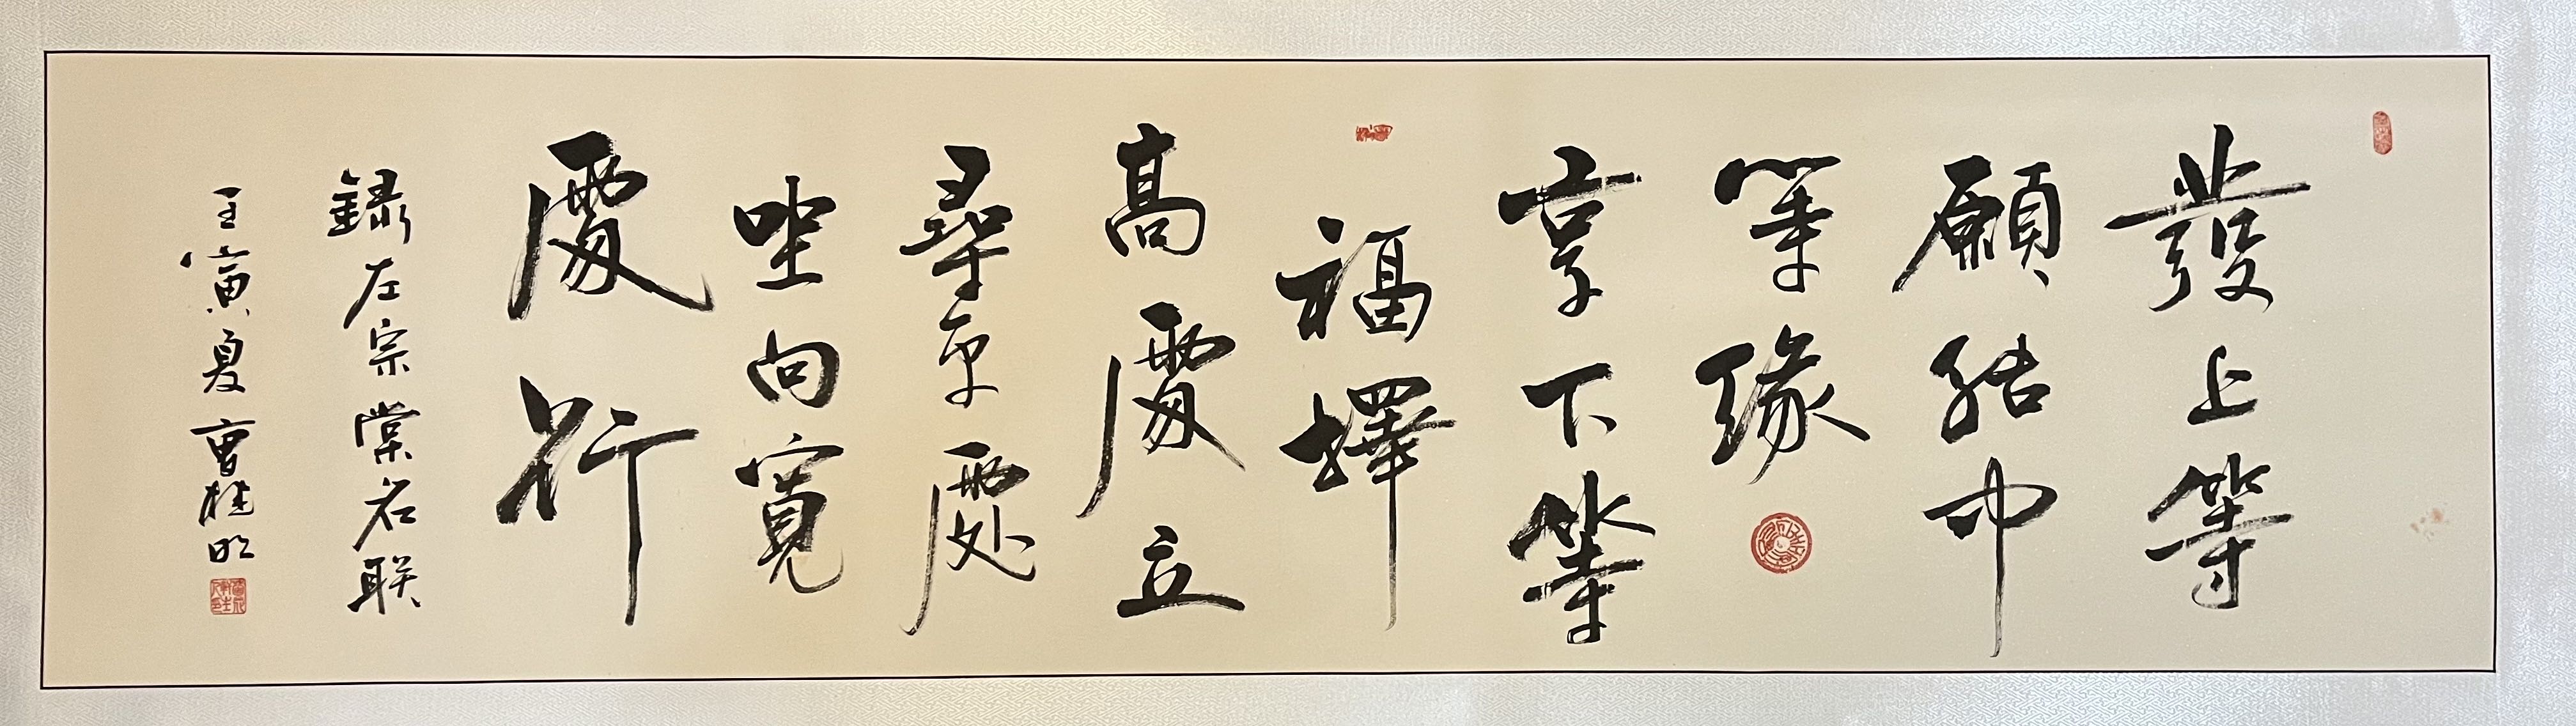 發上等
願結中
等緣
享下等
福擇
高處立
尋平處
坐向寬
處行
録左宗棠名联
壬寅夏曹桂明